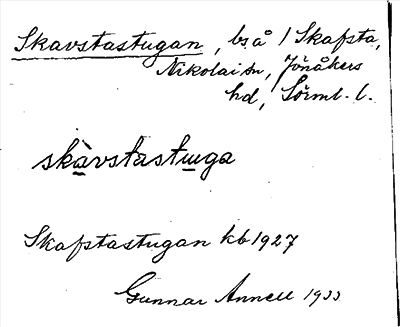 Skavstastugan, bs å / Skafsta,
Nikolai sn, Jönåkers
hd, Sörml. l.
skàvstastuga
Skafstastugan kb 1927
Gunnar Annell 1933